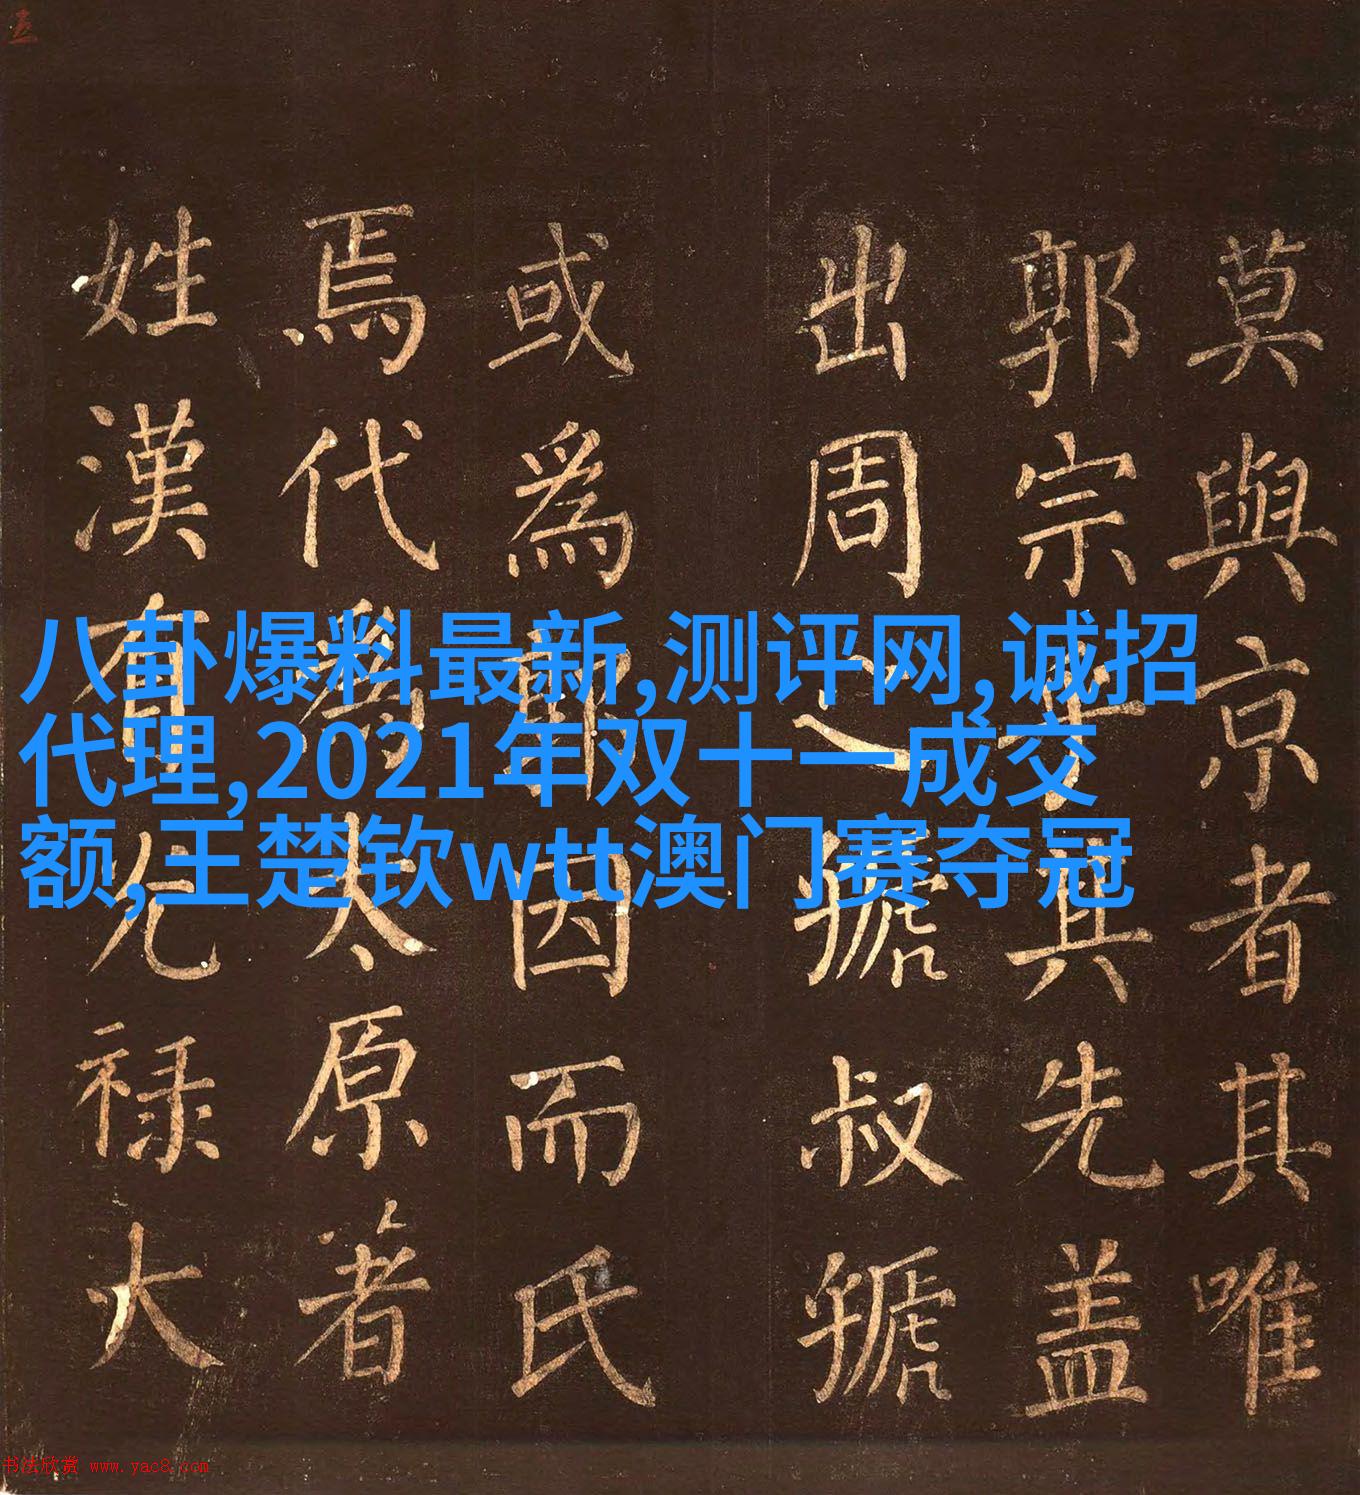 莫與京者其唯
郭宗乎其先盖
出周之虢叔虢
或為郭因而氏
焉代為太原著
姓漢有光禄大
八卦爆料最新,测评网,诚招
代理,2021年双十一成交
额,王楚钦wtt澳门赛夺冠
书法欣赏 www.yac8.com